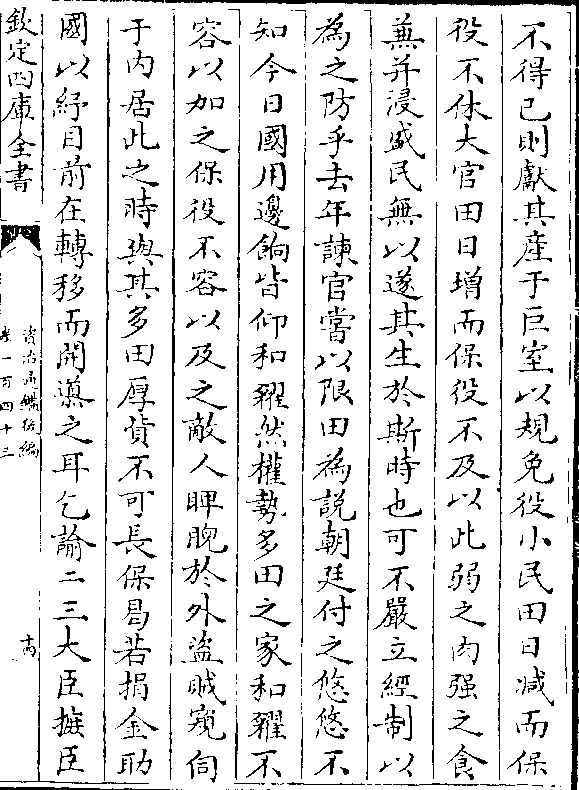 不得已則獻其産于巨室以規免役小民田日減而保
役不休大官田日增而保役不及以此弱之肉强之食
蕪并浸盛民無以遂其生於斯時也可不嚴立經制以
為之防乎去年諫官嘗以限田為說朝廷付之悠悠不
知今日國用邊餉皆仰和糴然權勢多田之家和糴不
容以加之保役不容以及之敵人睥睨於外盜賊窺伺
于内居此之時與其多田厚貲不可長保曷若捐金助
國以紓目前在轉移而開導之耳乞諭二三大臣摭臣
欽定四庫全書
資治通鑑後編
卷一百四十三
十四